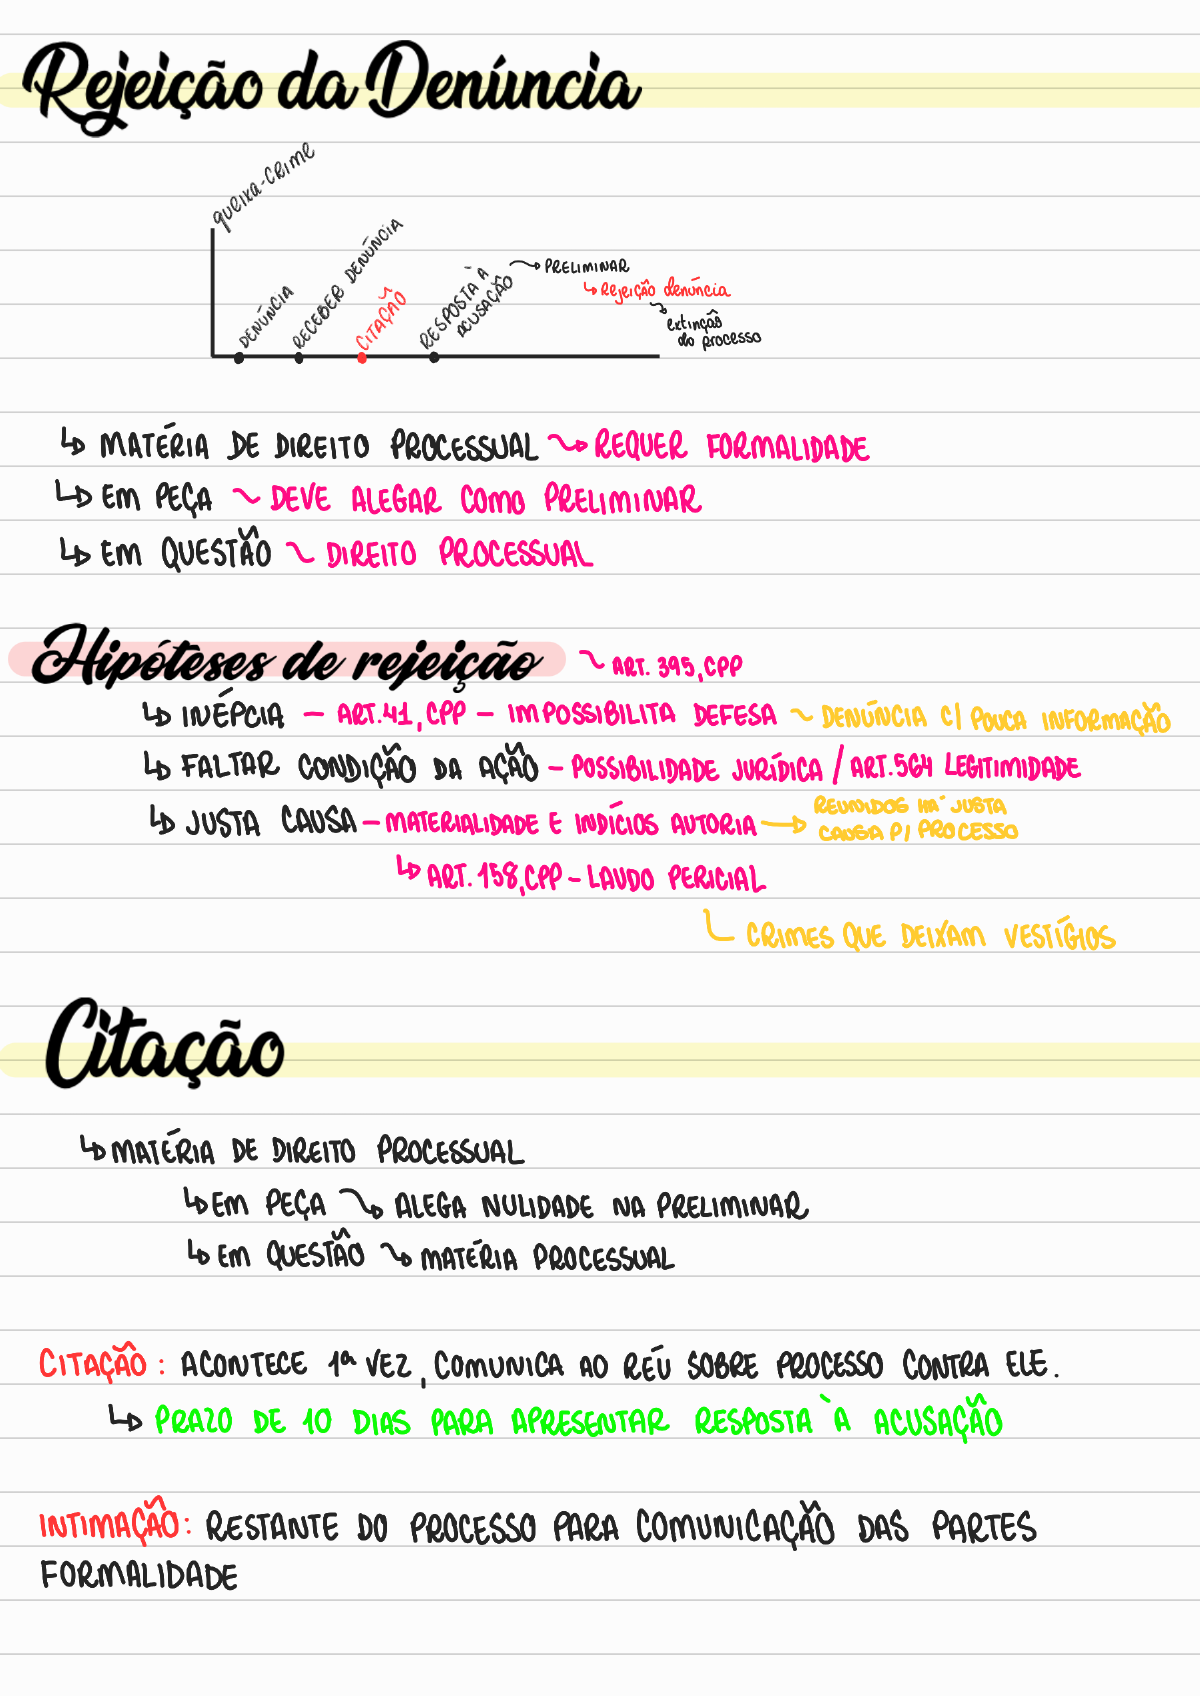 Rejeição da Denúncia
QUEIXA-CRIME
DENÚNCIA
RECEBER DENÚNCIA
CITAÇÃO
RESPOSTA À
ACUSAÇÃO
PRELIMINAR
↳ Rejeição denúncia
extinção
do processo
↳ MATÉRIA DE DIREITO PROCESSUAL → REQUER FORMALIDADE
↳ EM PEÇA ~ DEVE ALEGAR COMO PRELIMINAR
↳ EM QUESTÃO ~ DIREITO PROCESSUAL
Hipóteses de rejeição ~ ART. 395, CPP
↳ INÉPCIA – ART. 41, CPP – IMPOSSIBILITA DEFESA ~ DENÚNCIA C/ POUCA INFORMAÇÃO
↳ FALTAR CONDIÇÃO DA AÇÃO – POSSIBILIDADE JURÍDICA / ART. 564 LEGITIMIDADE
↳ JUSTA CAUSA – MATERIALIDADE E INDÍCIOS AUTORIA → REUNIDOS HÁ JUSTA
CAUSA P/ PROCESSO
↳ ART. 158, CPP – LAUDO PERICIAL
CRIMES QUE DEIXAM VESTÍGIOS
Citação
↳ MATÉRIA DE DIREITO PROCESSUAL
↳ EM PEÇA → ALEGA NULIDADE NA PRELIMINAR
↳ EM QUESTÃO → MATÉRIA PROCESSUAL
CITAÇÃO: ACONTECE 1ª VEZ, COMUNICA AO RÉU SOBRE PROCESSO CONTRA ELE.
↳ PRAZO DE 10 DIAS PARA APRESENTAR RESPOSTA À ACUSAÇÃO
INTIMAÇÃO: RESTANTE DO PROCESSO PARA COMUNICAÇÃO DAS PARTES
FORMALIDADE